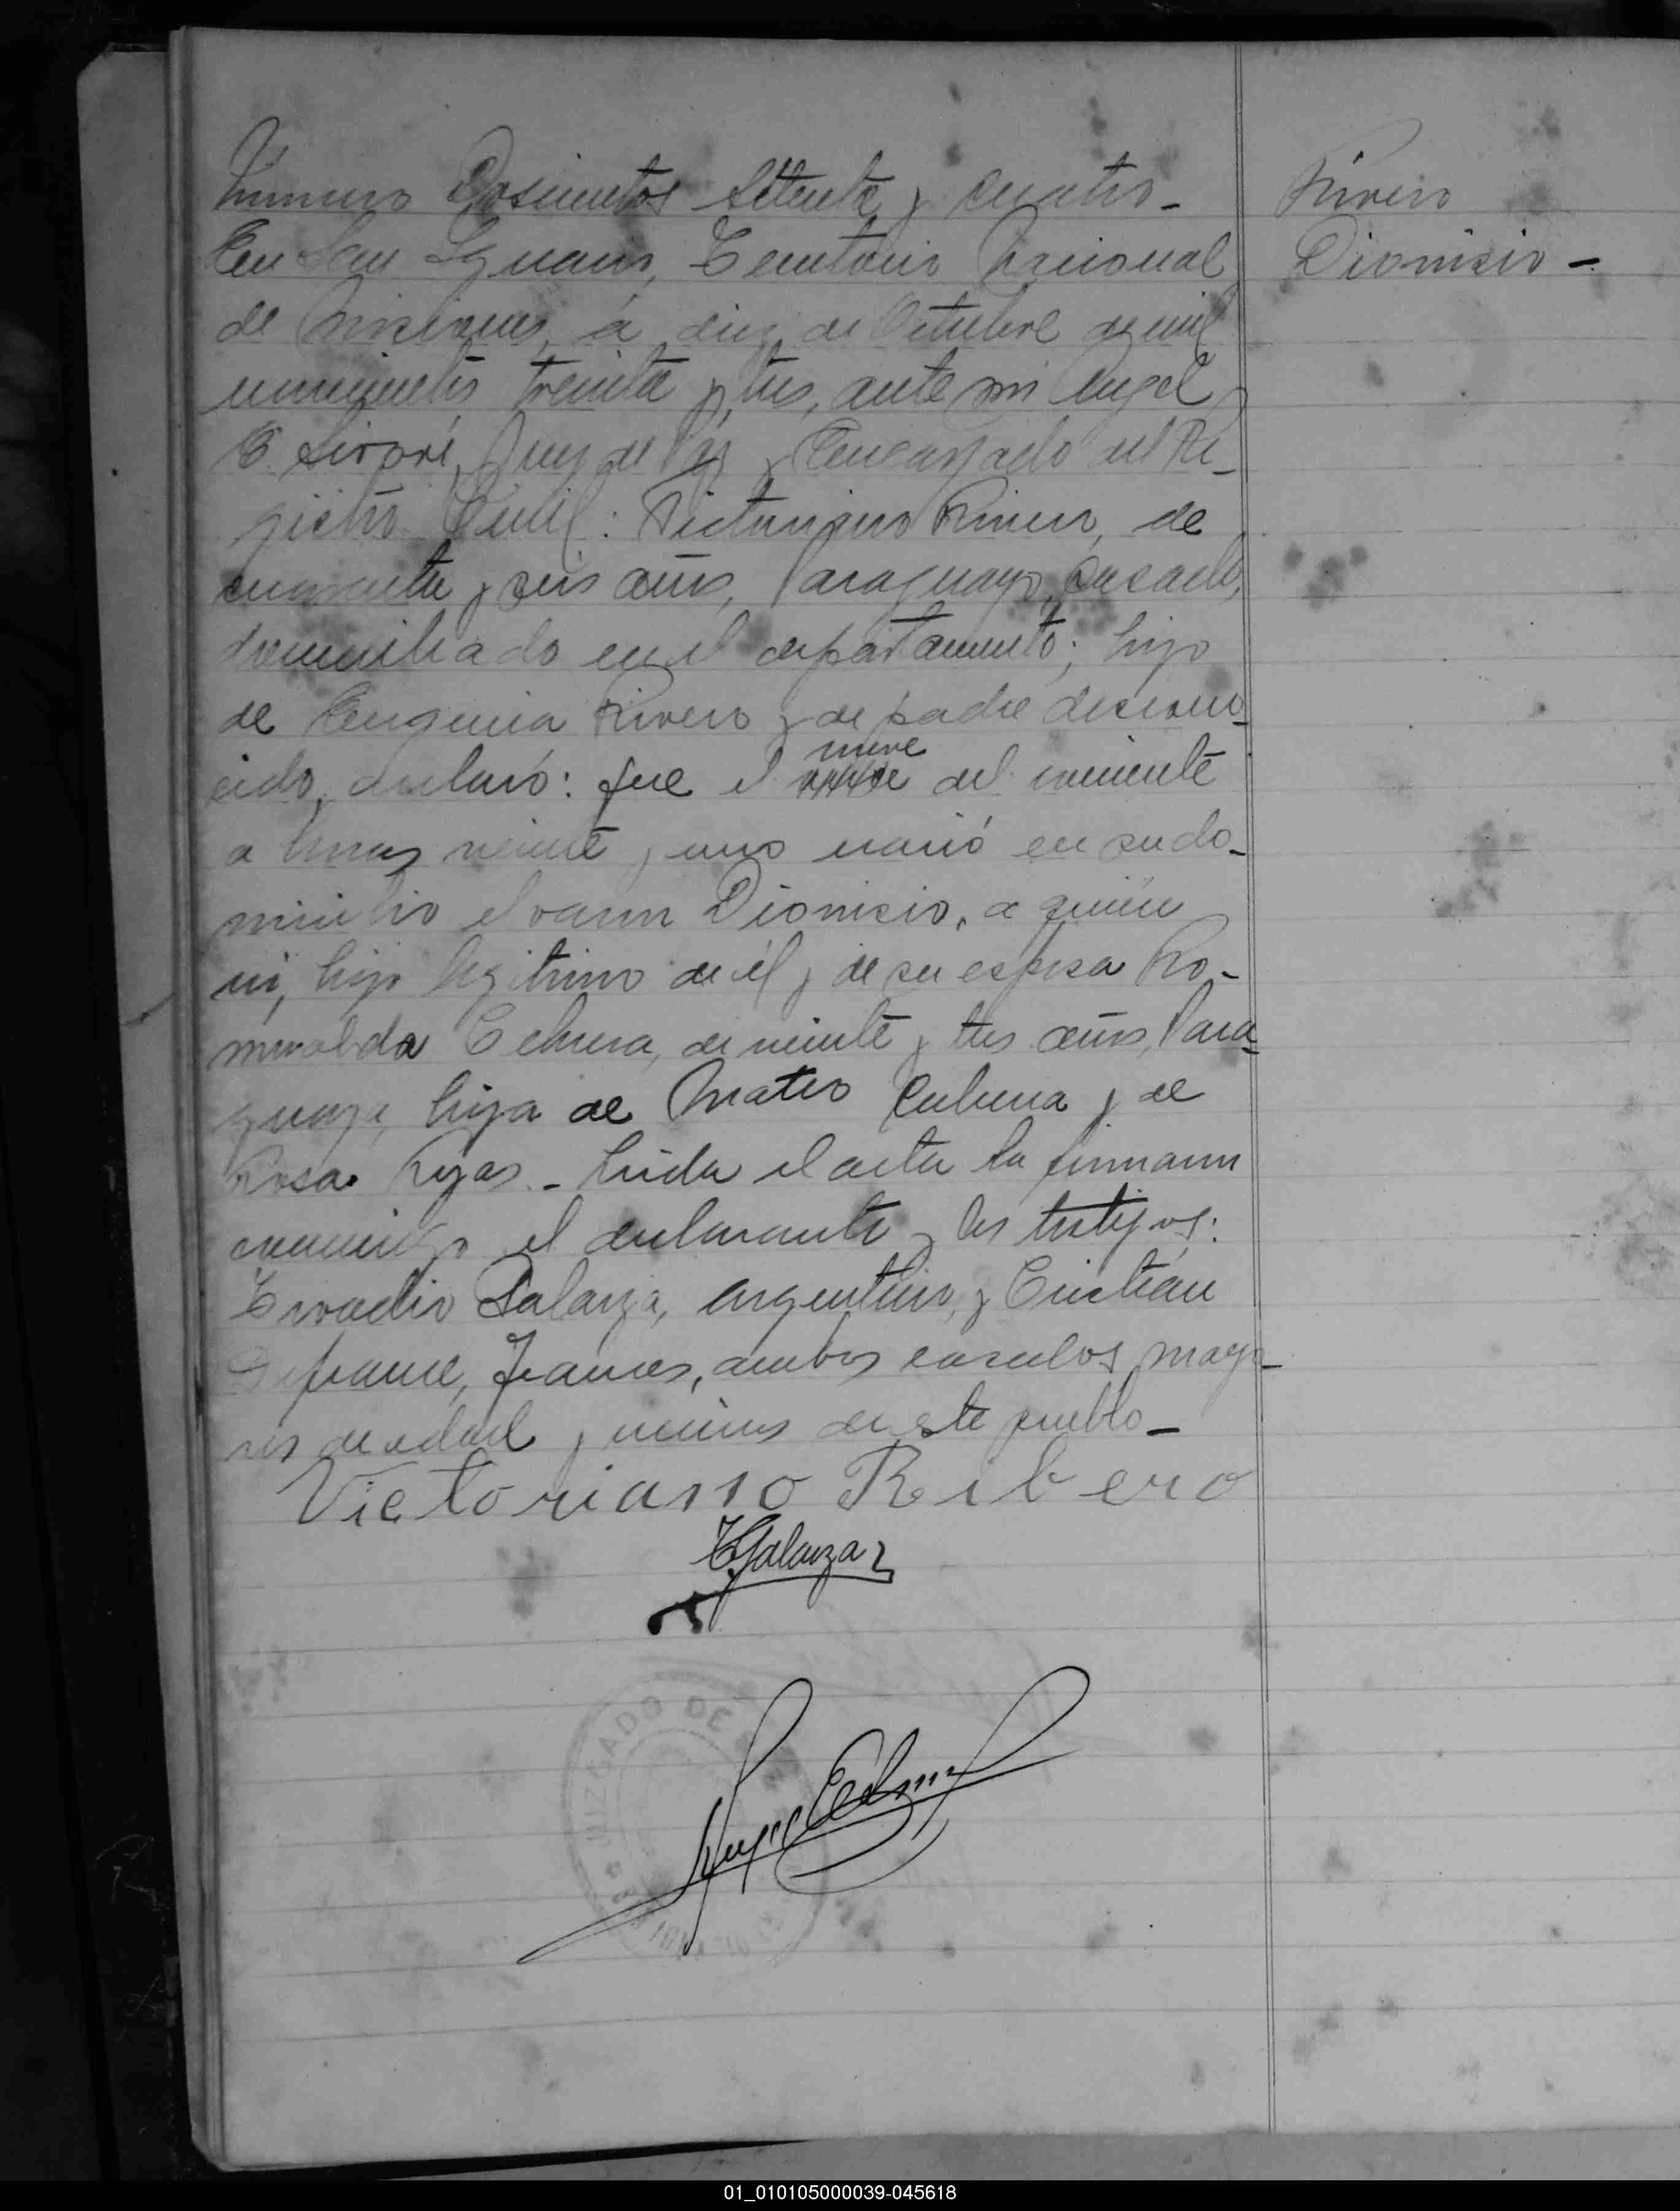 Numero Doscientos Setenta y cuatro -
En San Ignacio, Territorio Nacional
de Misiones, á diez de Octubre de mil
novecientos treinta y tres, ante mi Angel
E. Juez de Paz y Encargado del Re-
gistro Civil: Victoriano Rivero, de
cuarenta y seis años, Paraguayo, casado,
domiciliado en el departamento; hijo
de Eugenia Rivero y de padre descono-
cido, declaró: Que el nueve del corriente
a horas veinte y uno nació en su do-
micilio el varon Dionisio, a quién
vi, hijo legitimo de él y de su esposa Ro-
mualda de veinte y tres años, Para-
guaya, hija de Mateo y de
Rosa Rojas. - Leida el acta la firmaron
conmigo el declarante y los testigos:
Galarza, argentino, y Cristian
Frances, ambos casados, mayo-
res de edad y vecinos de este pueblo -
Victoriano Ribero
Galarza
Rivero
Dionisio -
JUZGADO DE
01_010105000039-045618